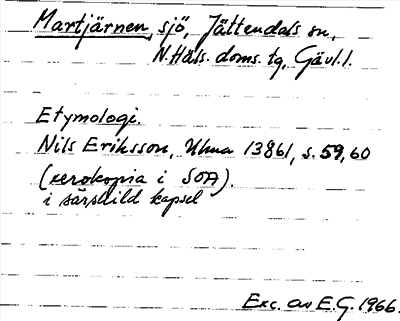 Martjärnen, sjö, Jättendals sn,
N.Häls. doms. tg, Gävl.l.
Etymologi.
Nils Eriksson, Ulma 13861, s. 59, 60
(xerokopia i SOA).
i särskild kapsel
Exc. av E.G. 1966.